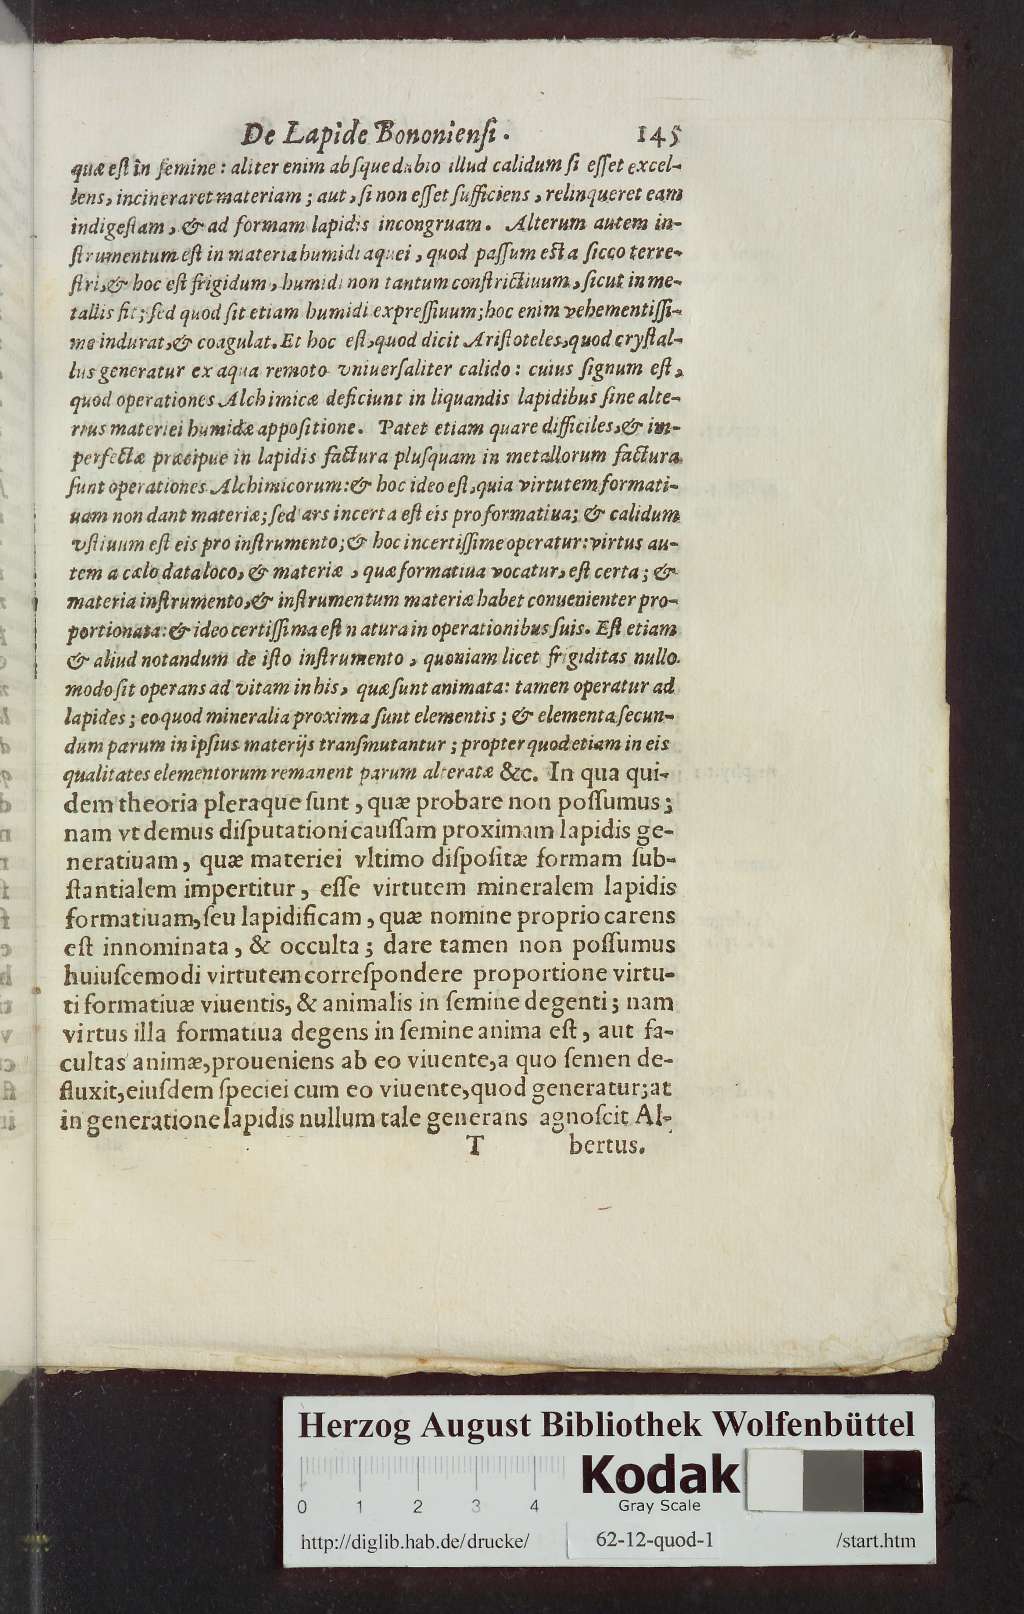 De Lapide Bononiensi. 145
quæ est in semine: aliter enim absque dubio illud calidum si esset excel-
lens, incineraret materiam; aut, si non esset sufficiens, relinqueret eam
indigestam, & ad formam lapidis incongruam. Alterum autem in-
strumentum est in materia humidi aquei, quod passum est a sicco terre-
stri, & hoc est frigidum, humidi non tantum constrictiuum, sicut in me-
tallis fit; sed quod sit etiam humidi expressiuum; hoc enim vehementissi-
me indurat, & coagulat. Et hoc est, quod dicit Aristoteles, quod crystal-
lus generatur ex aqua remoto vniuersaliter calido: cuius signum est,
quod operationes Alchimicæ deficiunt in liquandis lapidibus sine alte-
rius materiei humidæ appositione. Patet etiam quare difficiles, & im-
perfectæ præcipue in lapidis factura plusquam in metallorum factura
sunt operationes Alchimicorum: & hoc ideo est, quia virtutem formati-
uam non dant materiæ; sed ars incerta est eis pro formatiua; & calidum
vstiuum est eis pro instrumento; & hoc incertissime operatur: virtus au-
tem a cælo data loco, & materiæ, quæ formatiua vocatur, est certa; &
materia instrumento, & instrumentum materiæ habet conuenienter pro-
portionata: & ideo certissima est natura in operationibus suis. Est etiam
& aliud notandum de isto instrumento, quoniam licet frigiditas nullo
modo sit operans ad vitam in his, quæ sunt animata: tamen operatur ad
lapides; eo quod mineralia proxima sunt elementis; & elementa secun-
dum parum in ipsius materijs transmutantur; propter quod etiam in eis
qualitates elementorum remanent parum alteratæ &c. In qua qui-
dem theoria pleraque sunt, quæ probare non possumus;
nam vt demus disputationi caussam proximam lapidis ge-
neratiuam, quæ materiei vltimo dispositæ formam sub-
stantialem impertitur, esse virtutem mineralem lapidis
formatiuam, seu lapidificam, quæ nomine proprio carens
est innominata, & occulta; dare tamen non possumus
huiuscemodi virtutem correspondere proportione virtu-
ti formatiuæ viuentis, & animalis in semine degenti; nam
virtus illa formatiua degens in semine anima est, aut fa-
cultas animæ, proueniens ab eo viuente, a quo semen de-
fluxit, eiusdem speciei cum eo viuente, quod generatur; at
in generatione lapidis nullum tale generans agnoscit Al-
T bertus.
Herzog August Bibliothek Wolfenbüttel
0 1 2 3 4
Kodak
Gray Scale
http://diglib.hab.de/drucke/ 62-12-quod-1 /start.htm